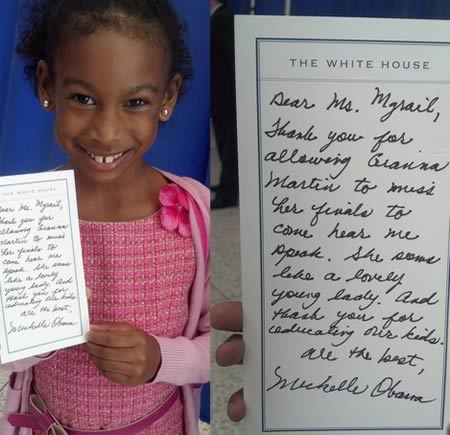 THE WHITE HOUSE
Dear Ms. Mgrail,
Thank you for
allowing Gianna
Martin to miss
her finals to
come hear me
speak. She seems
like a lovely
young lady. And
thank you for
educating our kids.
All the best,
Michelle Obama
THE WHITE HOUSE
Dear Ms. Mgrail,
Thank you for
allowing Gianna
Martin to miss
her finals to
come hear me
speak. She seems
like a lovely
young lady. And
thank you for
educating our kids.
All the best,
Michelle Obama